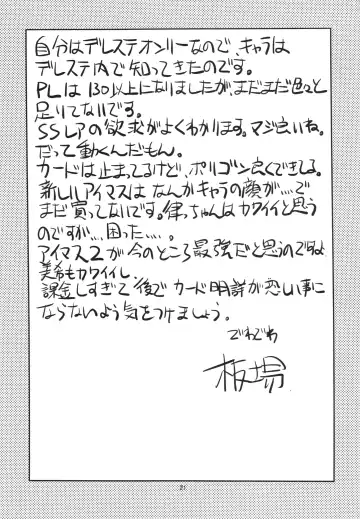 自分はデレステオンリーなので、キャラは
デレステ内で知ってきたのです。
PLは130以上になりましたが、まだまだ色々と
足りてないです。
SSレアの欲求がよくわかります。マジ良いね。
だって動くんだもん。
カードは止まってるけど、ポリゴン良くできてる。
新しいアイマスはなんかキャラの顔が‥‥で
まだ買ってないです。律っちゃんはカワイイと思う
のですが‥‥困った‥‥。
アイマス2が今のところ最強だと思うのですよ
美希もカワイイし、
課金しすぎて後でカード明詳が恐い事に
ならないよう気をつけましょう。
でわでわ
板場
21